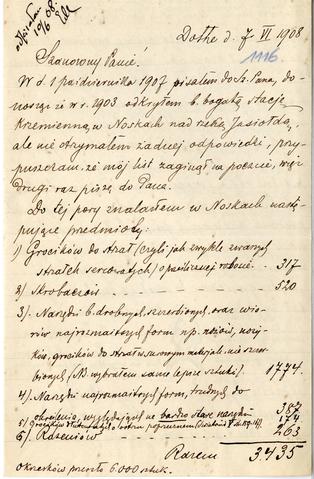 odpisałem
10/6 08.
Dothe d. 7 VI 1908
1116
Szanowny Panie!
W d. 1 października 1907 pisałem do Sz. Pana, do-
nosząc że w r. 1903 odkryłem b. bogatą stację
Krzemienną w Noskach nad rzeką Jasiołdą,
ale nie otrzymałem żadnej odpowiedzi, przy-
puszczam, że mój list zaginął na poczcie, więc
drugi raz piszę do Pana.
Do tej pory znalazłem w Noskach nastę-
pujące przedmioty:
1) Grocików do strzał (czyli jak zwykle zwanych
strzałek sercowatych) o pracowitszej robocie. 317
2) Skrobaczów 520
3) Narzędzi b. drobnych, szczerbionych, oraz wió-
rów najrozmaitszych form np. nożów, noży-
ków, grocików do strzał w surowym materjale nie szczer-
bionych (NB. wybrałem same lepsze sztuki) 1774.
4) Narzędzi najrozmaitszych form, trudnych do
określenia, wyglądających na bardzo stare narzędzia 387
5) Grocików z ostrzem poprzecznem 174
6) Rdzeniów 263
Razem 3.435
Okrzesków przeszło 6000 sztuk.